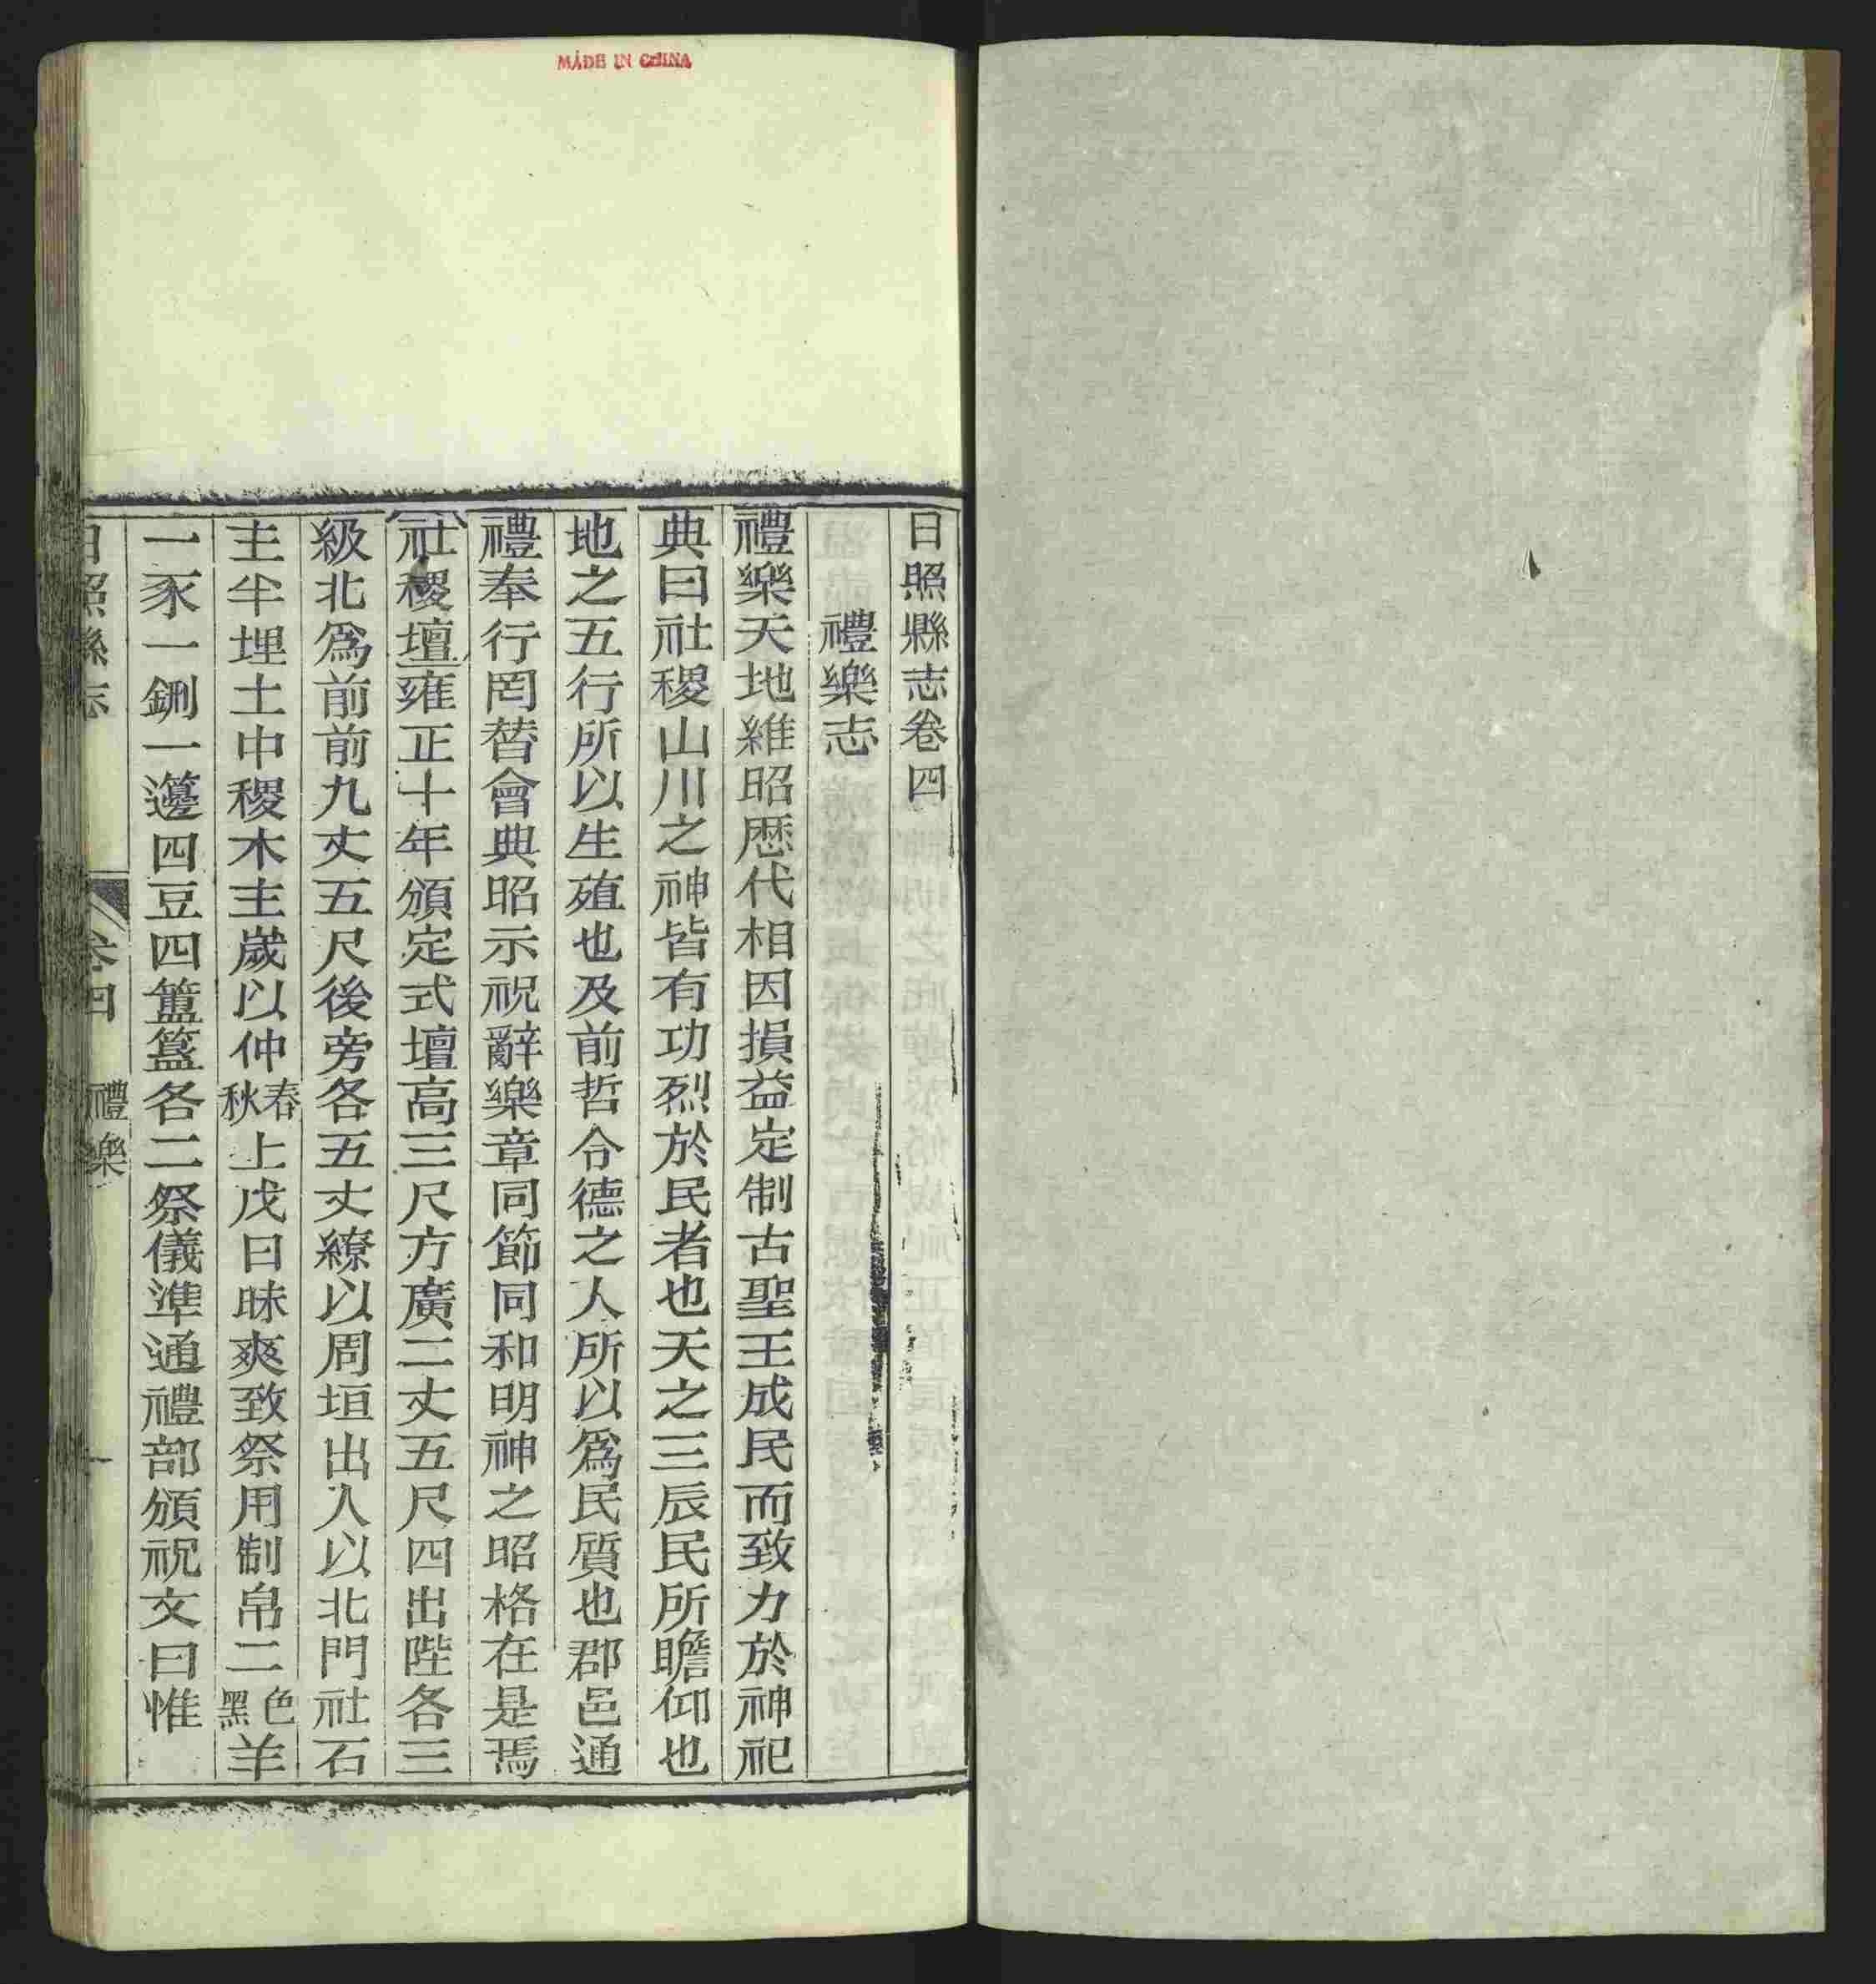 MADE IN CHINA
日照縣志卷四
禮樂志
禮樂天地維昭歴代相因損益定制古聖王成民而致力於神祀
典曰社稷山川之神皆有功烈於民者也天之三辰民所瞻仰也
地之五行所以生殖也及前哲令德之人所以爲民質也郡邑通
禮奉行罔替會典昭示祝辭樂章同節同和明神之昭格在是焉
社稷壇雍正十年頒定式壇高三尺方廣二丈五尺四出陛各三
級北爲前前九丈五尺後旁各五丈繚以周垣出入以北門社石
主半埋土中稷木主歲以仲春秋上戊日昧爽致祭用制帛二色黑羊
一豕一鉶一籩四豆四簠簋各二祭儀準通禮部頒祝文曰惟
日照縣志 卷四 禮樂 一